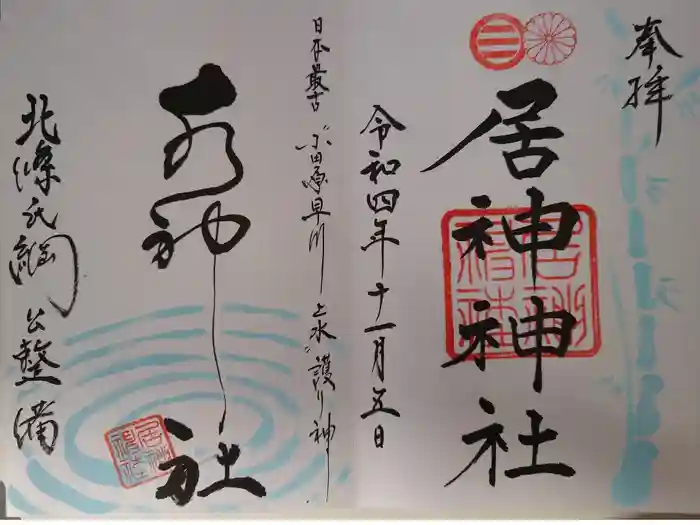 奉拝
居神神社
令和四年十一月五日
日本最古"小田原早川上水"護り神
水神社
北條氏綱公整備